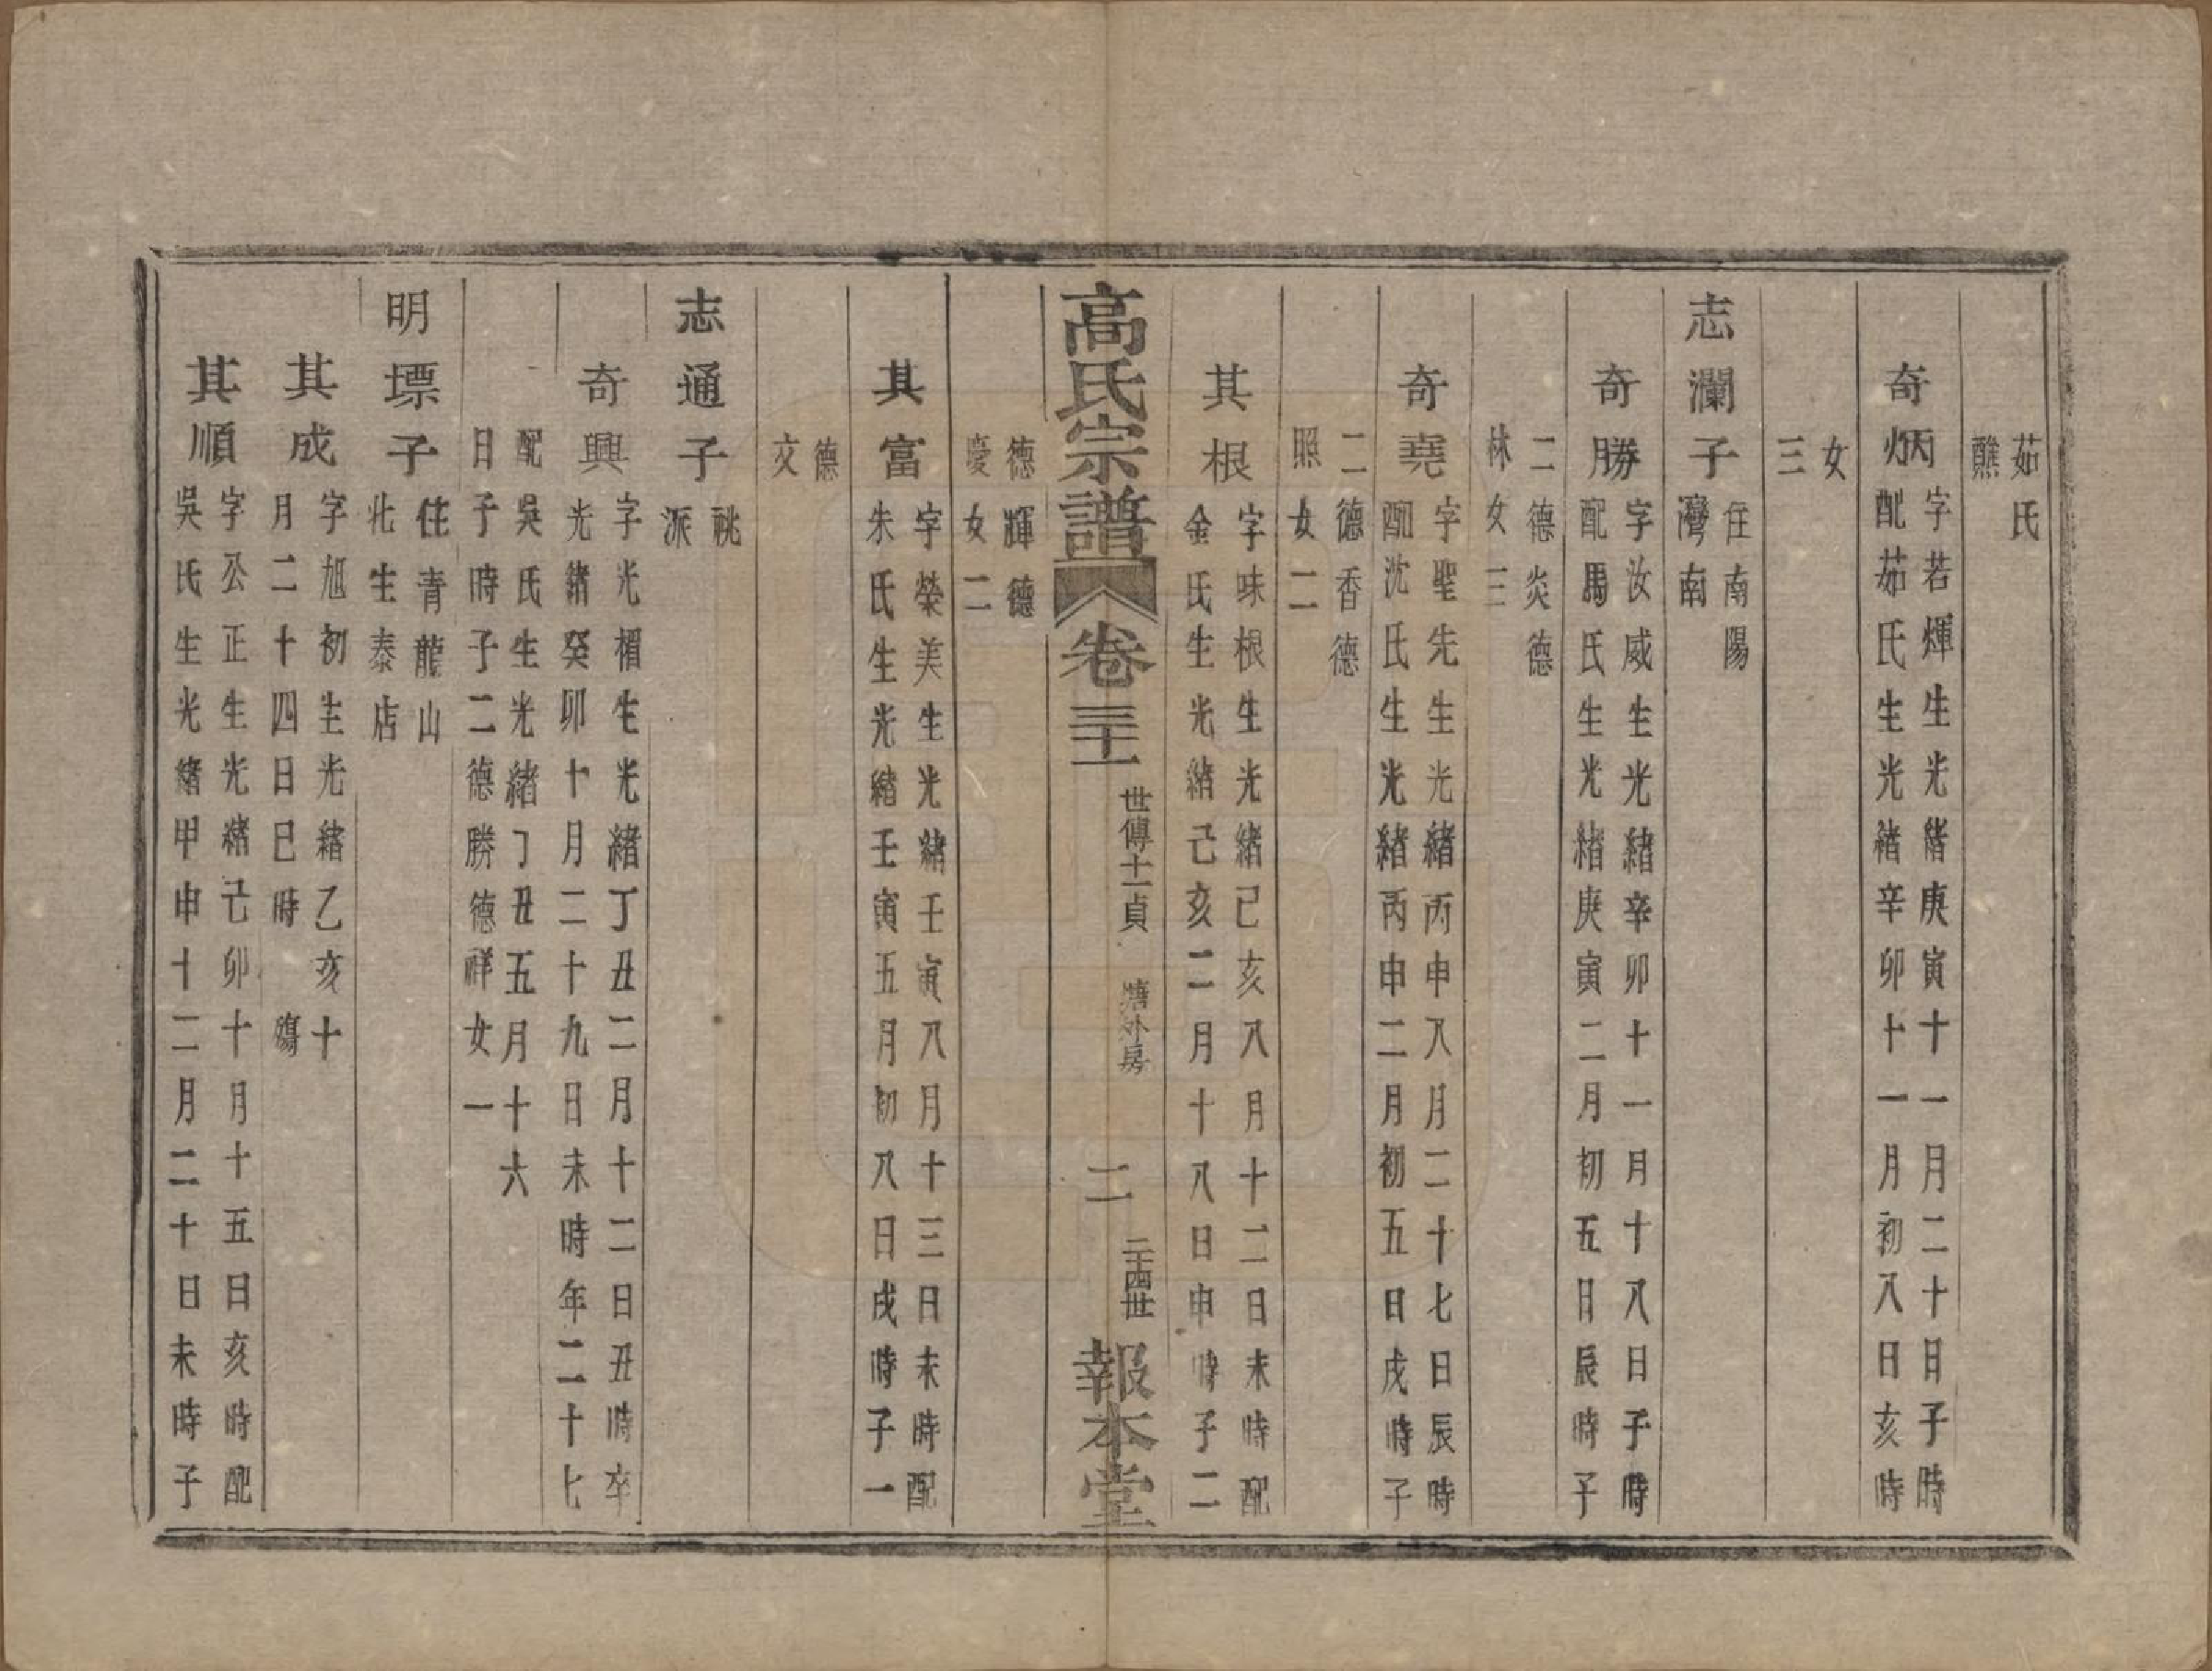 茹氏
醮
奇炳
字若煇生光緒庚寅十一月二十日子時
配茹氏生光緒辛卯十一月初八日亥時
女
三
志瀾子
住南陽
灣南
奇勝
字汝威生光緒辛卯十一月十八日子時
配馬氏生光緒庚寅二月初五日辰時子
二德炎德
林女三
奇堯
字聖先生光緒丙申八月二十七日辰時
配沈氏生光緒丙申二月初五日戌時子
二德香德
照女二
其根
字味根生光緒己亥八月十二日未時配
金氏生光緒己亥二月十八日申時子二
高氏宗譜 卷三十一 世傳十一貞 塘外房 二 二十四世 報本堂
德輝德
慶女二
其富
字榮美生光緒壬寅八月十三日未時配
朱氏生光緒壬寅五月初八日戌時子一
德
文
志通子
祧
派
奇興
字光楣生光緒丁丑二月十二日丑時卒
光緒癸卯十月二十九日未時年二十七
配吳氏生光緒丁丑五月十六
日子時子二德勝德祥女一
明墂子
住青龍山
北生泰店
其成
字旭初生光緒乙亥十
月二十四日巳時 殤
其順
字公正生光緒己卯十月十五日亥時配
吳氏生光緒甲申十二月二十日未時子